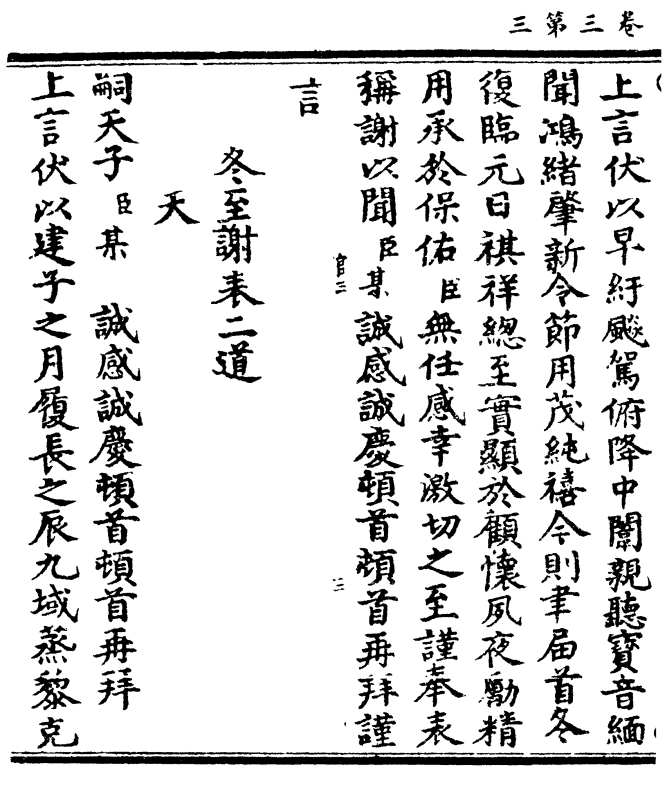 卷三第三
上言伏以早紆飈駕俯降中闈親聽寶音緬
聞鴻緒肇新令節用茂純禧今則聿屆首冬
復臨元日祺祥總至實顯於顧懷夙夜勵精
用承於保佑臣無任感幸激切之至謹奉表
稱謝以聞臣某誠感誠慶頓首頓首再拜謹
官三
三
言
冬至謝表二道
天
嗣天子臣某 誠感誠慶頓首頓首再拜
上言伏以建子之月履長之辰九域蒸黎克